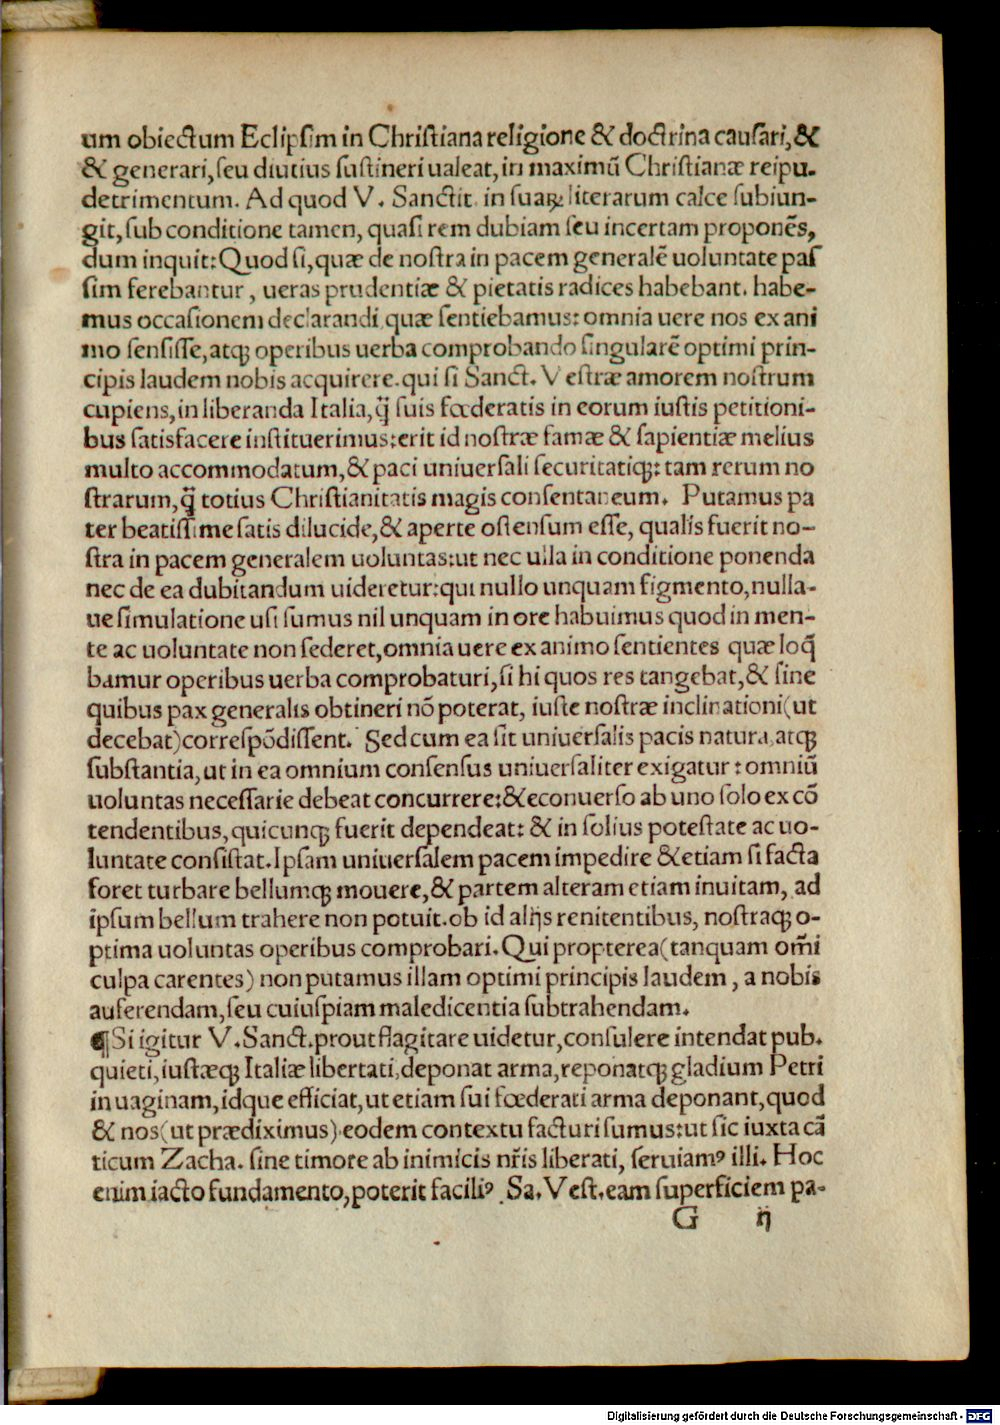 um obiectum Eclipsim in Christiana religione & doctrina causari, &
& generari, seu diutius sustineri ualeat, in maximũ Christianæ reipu.
detrimentum. Ad quod V. Sanctit. in suaꝝ literarum calce subiun-
git, sub conditione tamen, quasi rem dubiam seu incertam proponẽs,
dum inquit: Quod si, quæ de nostra in pacem generalẽ uoluntate pas
sim ferebantur, ueras prudentiæ & pietatis radices habebant. habe-
mus occasionem declarandi quæ sentiebamus: omnia uere nos ex ani
mo sensisse, atqꝫ operibus uerba comprobando singularẽ optimi prin-
cipis laudem nobis acquirere. qui si Sanct. Vestræ amorem nostrum
cupiens, in liberanda Italia, q̃ suis fœderatis in eorum iustis petitioni-
bus satisfacere instituerimus: erit id nostræ famæ & sapientiæ melius
multo accommodatum, & paci uniuersali securitatiqꝫ: tam rerum no
strarum, q̃ totius Christianitatis magis consentaneum. Putamus pa
ter beatissime satis dilucide, & aperte ostensum esse, qualis fuerit no-
stra in pacem generalem uoluntas: ut nec ulla in conditione ponenda
nec de ea dubitandum uideretur: qui nullo unquam figmento, nulla-
ue simulatione usi sumus nil unquam in ore habuimus quod in men-
te ac uoluntate non sederet, omnia uere ex animo sentientes quæ loq̃
bamur operibus uerba comprobaturi, si hi quos res tangebat, & sine
quibus pax generalis obtineri nõ poterat, iuste nostræ inclinationi (ut
decebat) correspõdissent. Sed cum ea sit uniuersalis pacis natura, atqꝫ
substantia, ut in ea omnium consensus uniuersaliter exigatur: omniũ
uoluntas necessarie debeat concurrere: & econuerso ab uno solo ex cõ
tendentibus, quicunqꝫ fuerit dependeat: & in solius potestate ac uo-
luntate consistat. Ipsam uniuersalem pacem impedire & etiam si facta
foret turbare bellumqꝫ mouere, & partem alteram etiam inuitam, ad
ipsum bellum trahere non potuit. ob id alijs renitentibus, nostraqꝫ o-
ptima uoluntas operibus comprobari. Qui propterea (tanquam om̃i
culpa carentes) non putamus illam optimi principis laudem, a nobis
auferendam, seu cuiuspiam maledicentia subtrahendam.
¶ Si igitur V. Sanct. prout flagitare uidetur, consulere intendat pub.
quieti, iustæqꝫ Italiæ libertati, deponat arma, reponatqꝫ gladium Petri
in uaginam, idque efficiat, ut etiam sui fœderati arma deponant, quod
& nos (ut prædiximus) eodem contextu facturi sumus: ut sic iuxta cã
ticum Zacha. sine timore ab inimicis nr̃is liberati, seruiamꝰ illi. Hoc
enim iacto fundamento, poterit faciliꝰ Sa. Vest. eam superficiem pa-
G ij
Digitalisierung gefördert durch die Deutsche Forschungsgemeinschaft - DFG